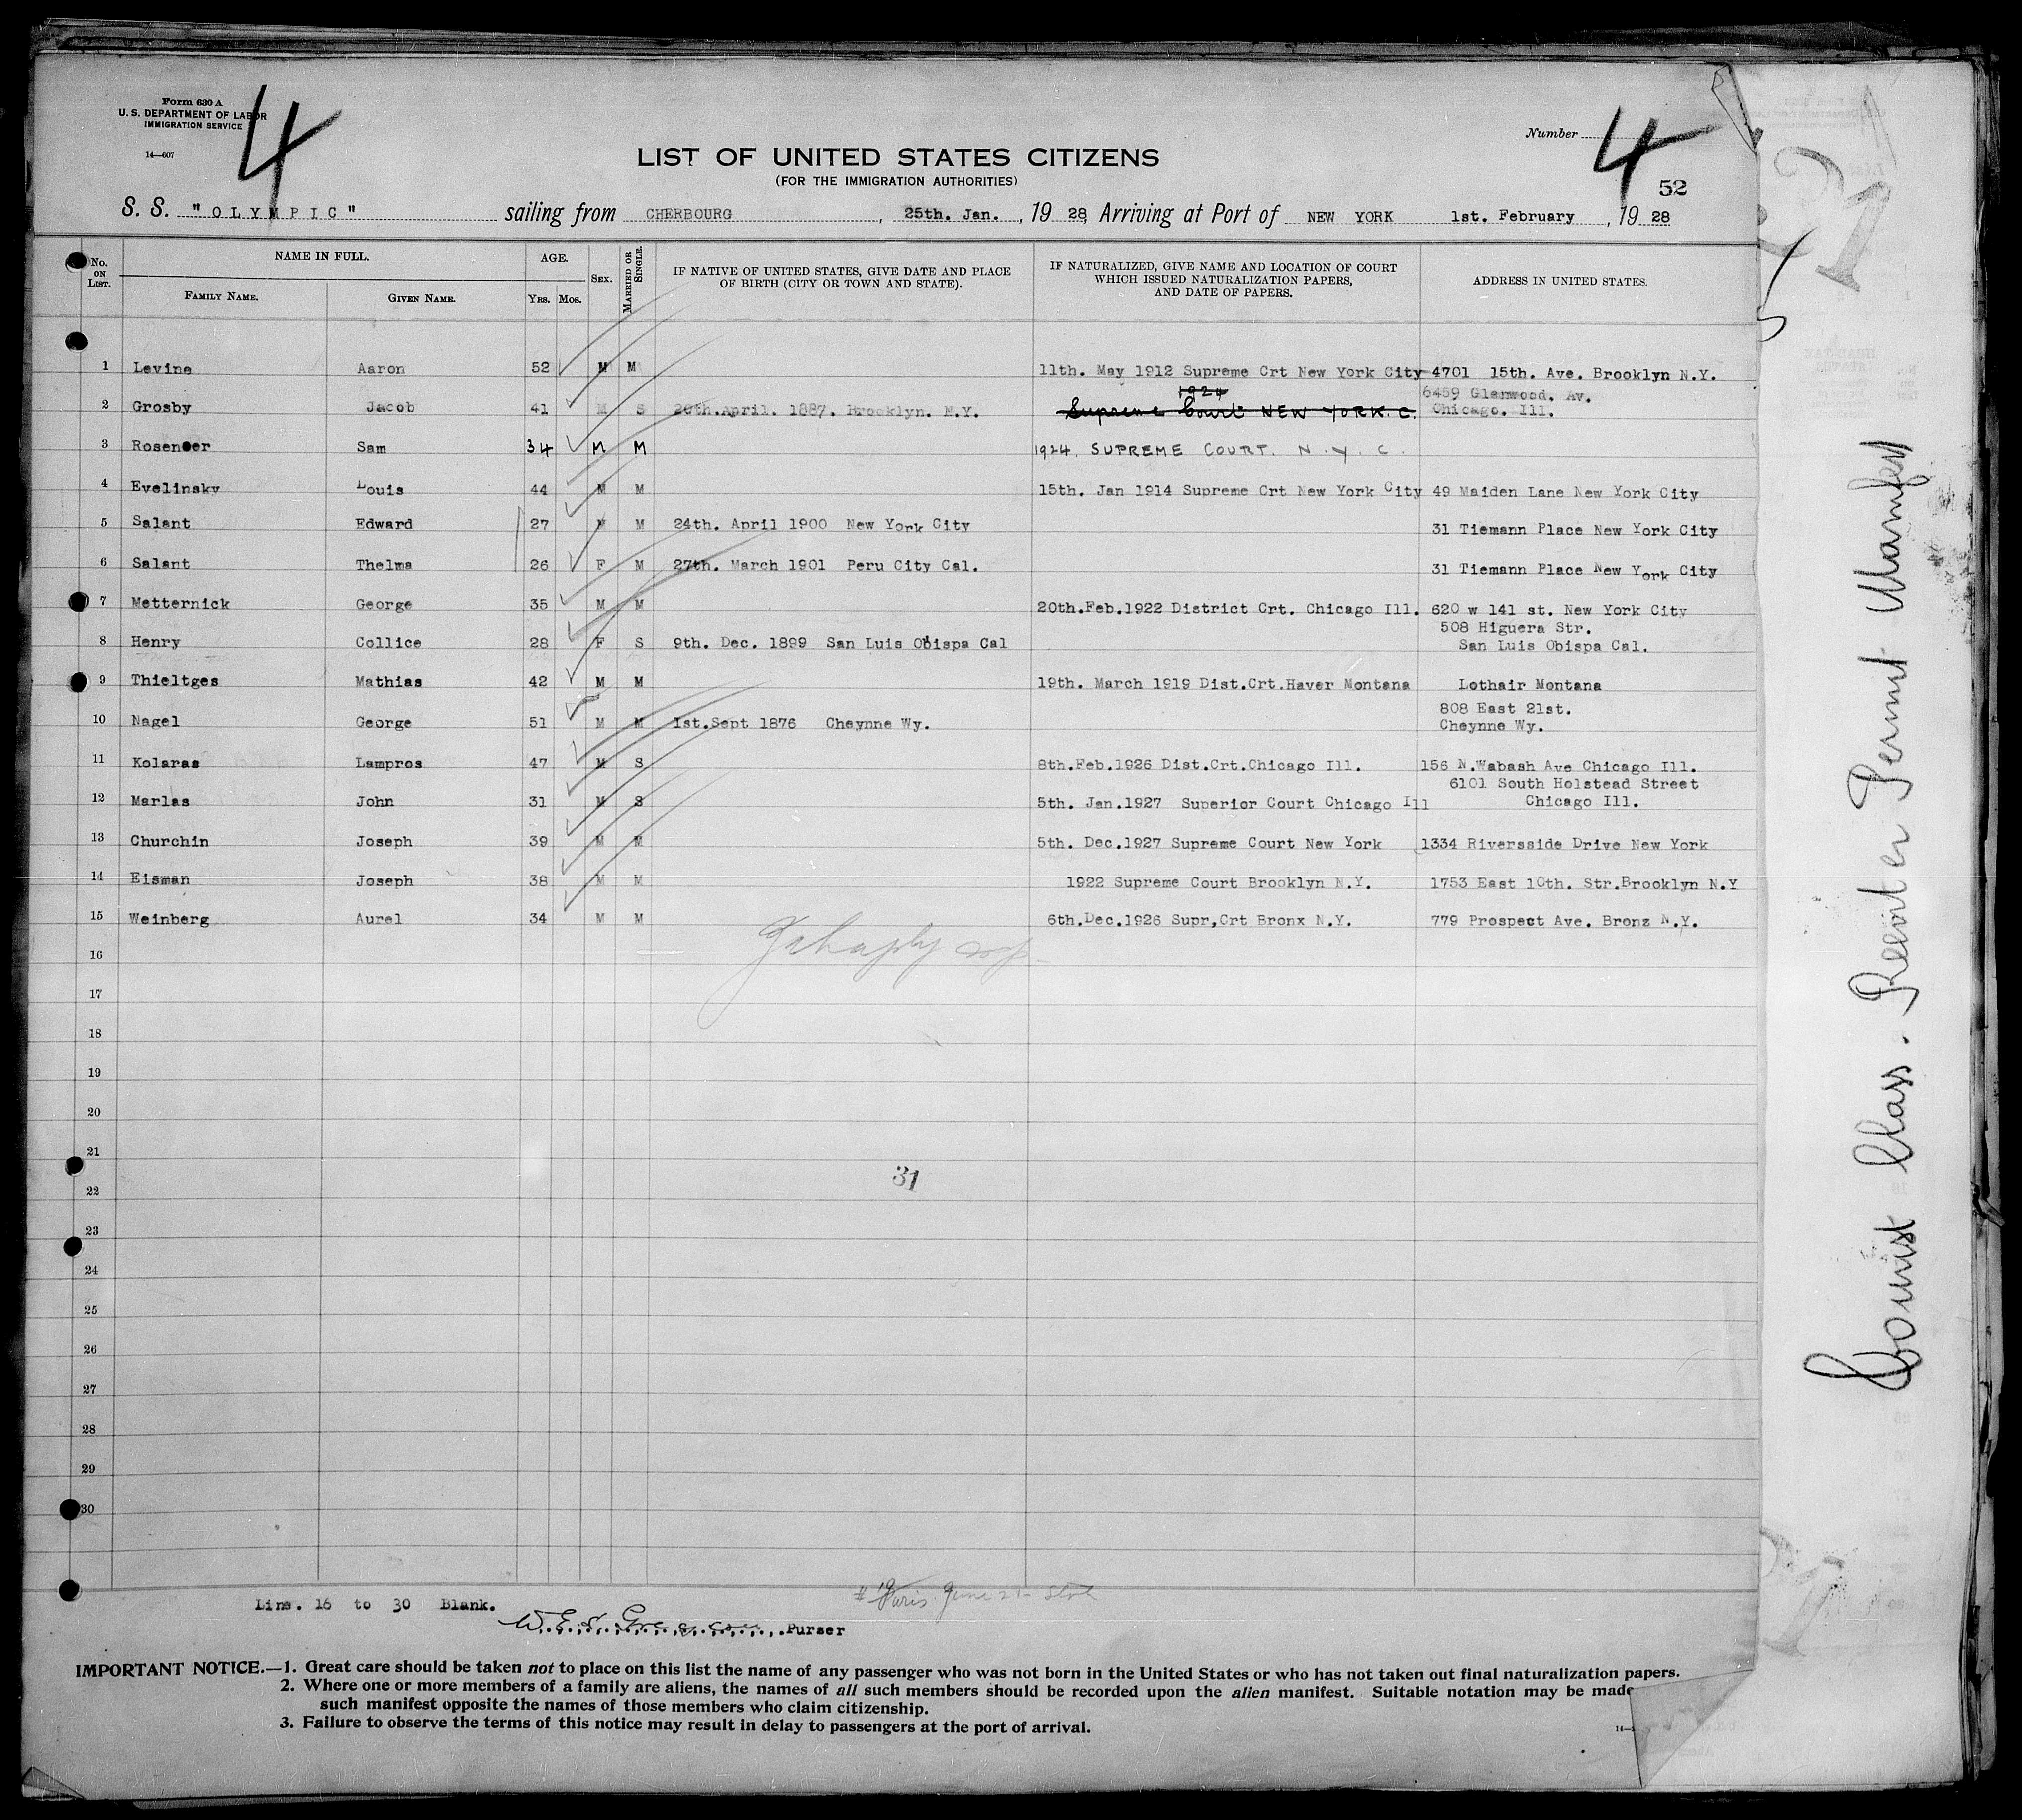 Form 630 A
U. S. DEPARTMENT OF LABOR
IMMIGRATION SERVICE
14—607
4
Number 4
52
LIST OF UNITED STATES CITIZENS
(FOR THE IMMIGRATION AUTHORITIES)
S. S. "OLYMPIC" sailing from CHERBOURG, 25th. Jan., 19 28, Arriving at Port of NEW YORK 1st. February, 19 28
No. ON LIST. NAME IN FULL. FAMILY NAME. GIVEN NAME. AGE. YRS. MOS. SEX. MARRIED OR SINGLE. IF NATIVE OF UNITED STATES, GIVE DATE AND PLACE OF BIRTH (CITY OR TOWN AND STATE). IF NATURALIZED, GIVE NAME AND LOCATION OF COURT WHICH ISSUED NATURALIZATION PAPERS, AND DATE OF PAPERS. ADDRESS IN UNITED STATES.
1 Levine Aaron 52 M M 11th. May 1912 Supreme Crt New York City 4701 15th. Ave. Brooklyn N.Y.
2 Grosby Jacob 41 M S 20th.April. 1887. Brooklyn. N.Y. 1924 Supreme Court NEW YORK.C. 6459 Glenwood. Av. Chicago. Ill.
3 Sam 34 M M 1924. SUPREME COURT. N.Y.C.
4 Evelinsky Louis 44 M M 15th. Jan 1914 Supreme Crt New York City 49 Maiden Lane New York City
5 Salant Edward 27 M M 24th. April 1900 New York City 31 Tiemann Place New York City
6 Salant Thelma 26 F M 27th. March 1901 Peru City Cal. 31 Tiemann Place New York City
7 Metternick George 35 M M 20th.Feb.1922 District Crt. Chicago Ill. 620 w 141 st. New York City
8 Henry Collice 28 F S 9th. Dec. 1899 San Luis Obispa Cal 508 Higuera Str. San Luis Obispa Cal.
9 Thieltges Mathias 42 M M 19th. March 1919 Dist.Crt.Haver Montana Lothair Montana
10 Nagel George 51 M M 1st.Sept 1876 Cheynne Wy. 808 East 21st. Cheynne Wy.
11 Kolaras Lampros 47 M S 8th.Feb.1926 Dist.Crt.Chicago Ill. 156 N.Wabash Ave Chicago Ill.
12 Marlas John 31 M S 5th. Jan.1927 Superior Court Chicago Ill 6101 South Holstead Street Chicago Ill.
13 Churchin Joseph 39 M M 5th. Dec.1927 Supreme Court New York 1334 Riversside Drive New York
14 Eisman Joseph 38 M M 1922 Supreme Court Brooklyn N.Y. 1753 East 10th. Str.Brooklyn N.Y
15 Weinberg Aurel 34 M M 6th.Dec.1926 Supr,Crt Bronx N.Y. 779 Prospect Ave. Bronz N.Y.
16
17
18
19
20
21
31
22
23
24
25
26
27
28
29
30
Line. 16 to 30 Blank.
Purser
IMPORTANT NOTICE.—1. Great care should be taken not to place on this list the name of any passenger who was not born in the United States or who has not taken out final naturalization papers.
2. Where one or more members of a family are aliens, the names of all such members should be recorded upon the alien manifest. Suitable notation may be made
such manifest opposite the names of those members who claim citizenship.
3. Failure to observe the terms of this notice may result in delay to passengers at the port of arrival.
Tourist Class. Permit Manifest